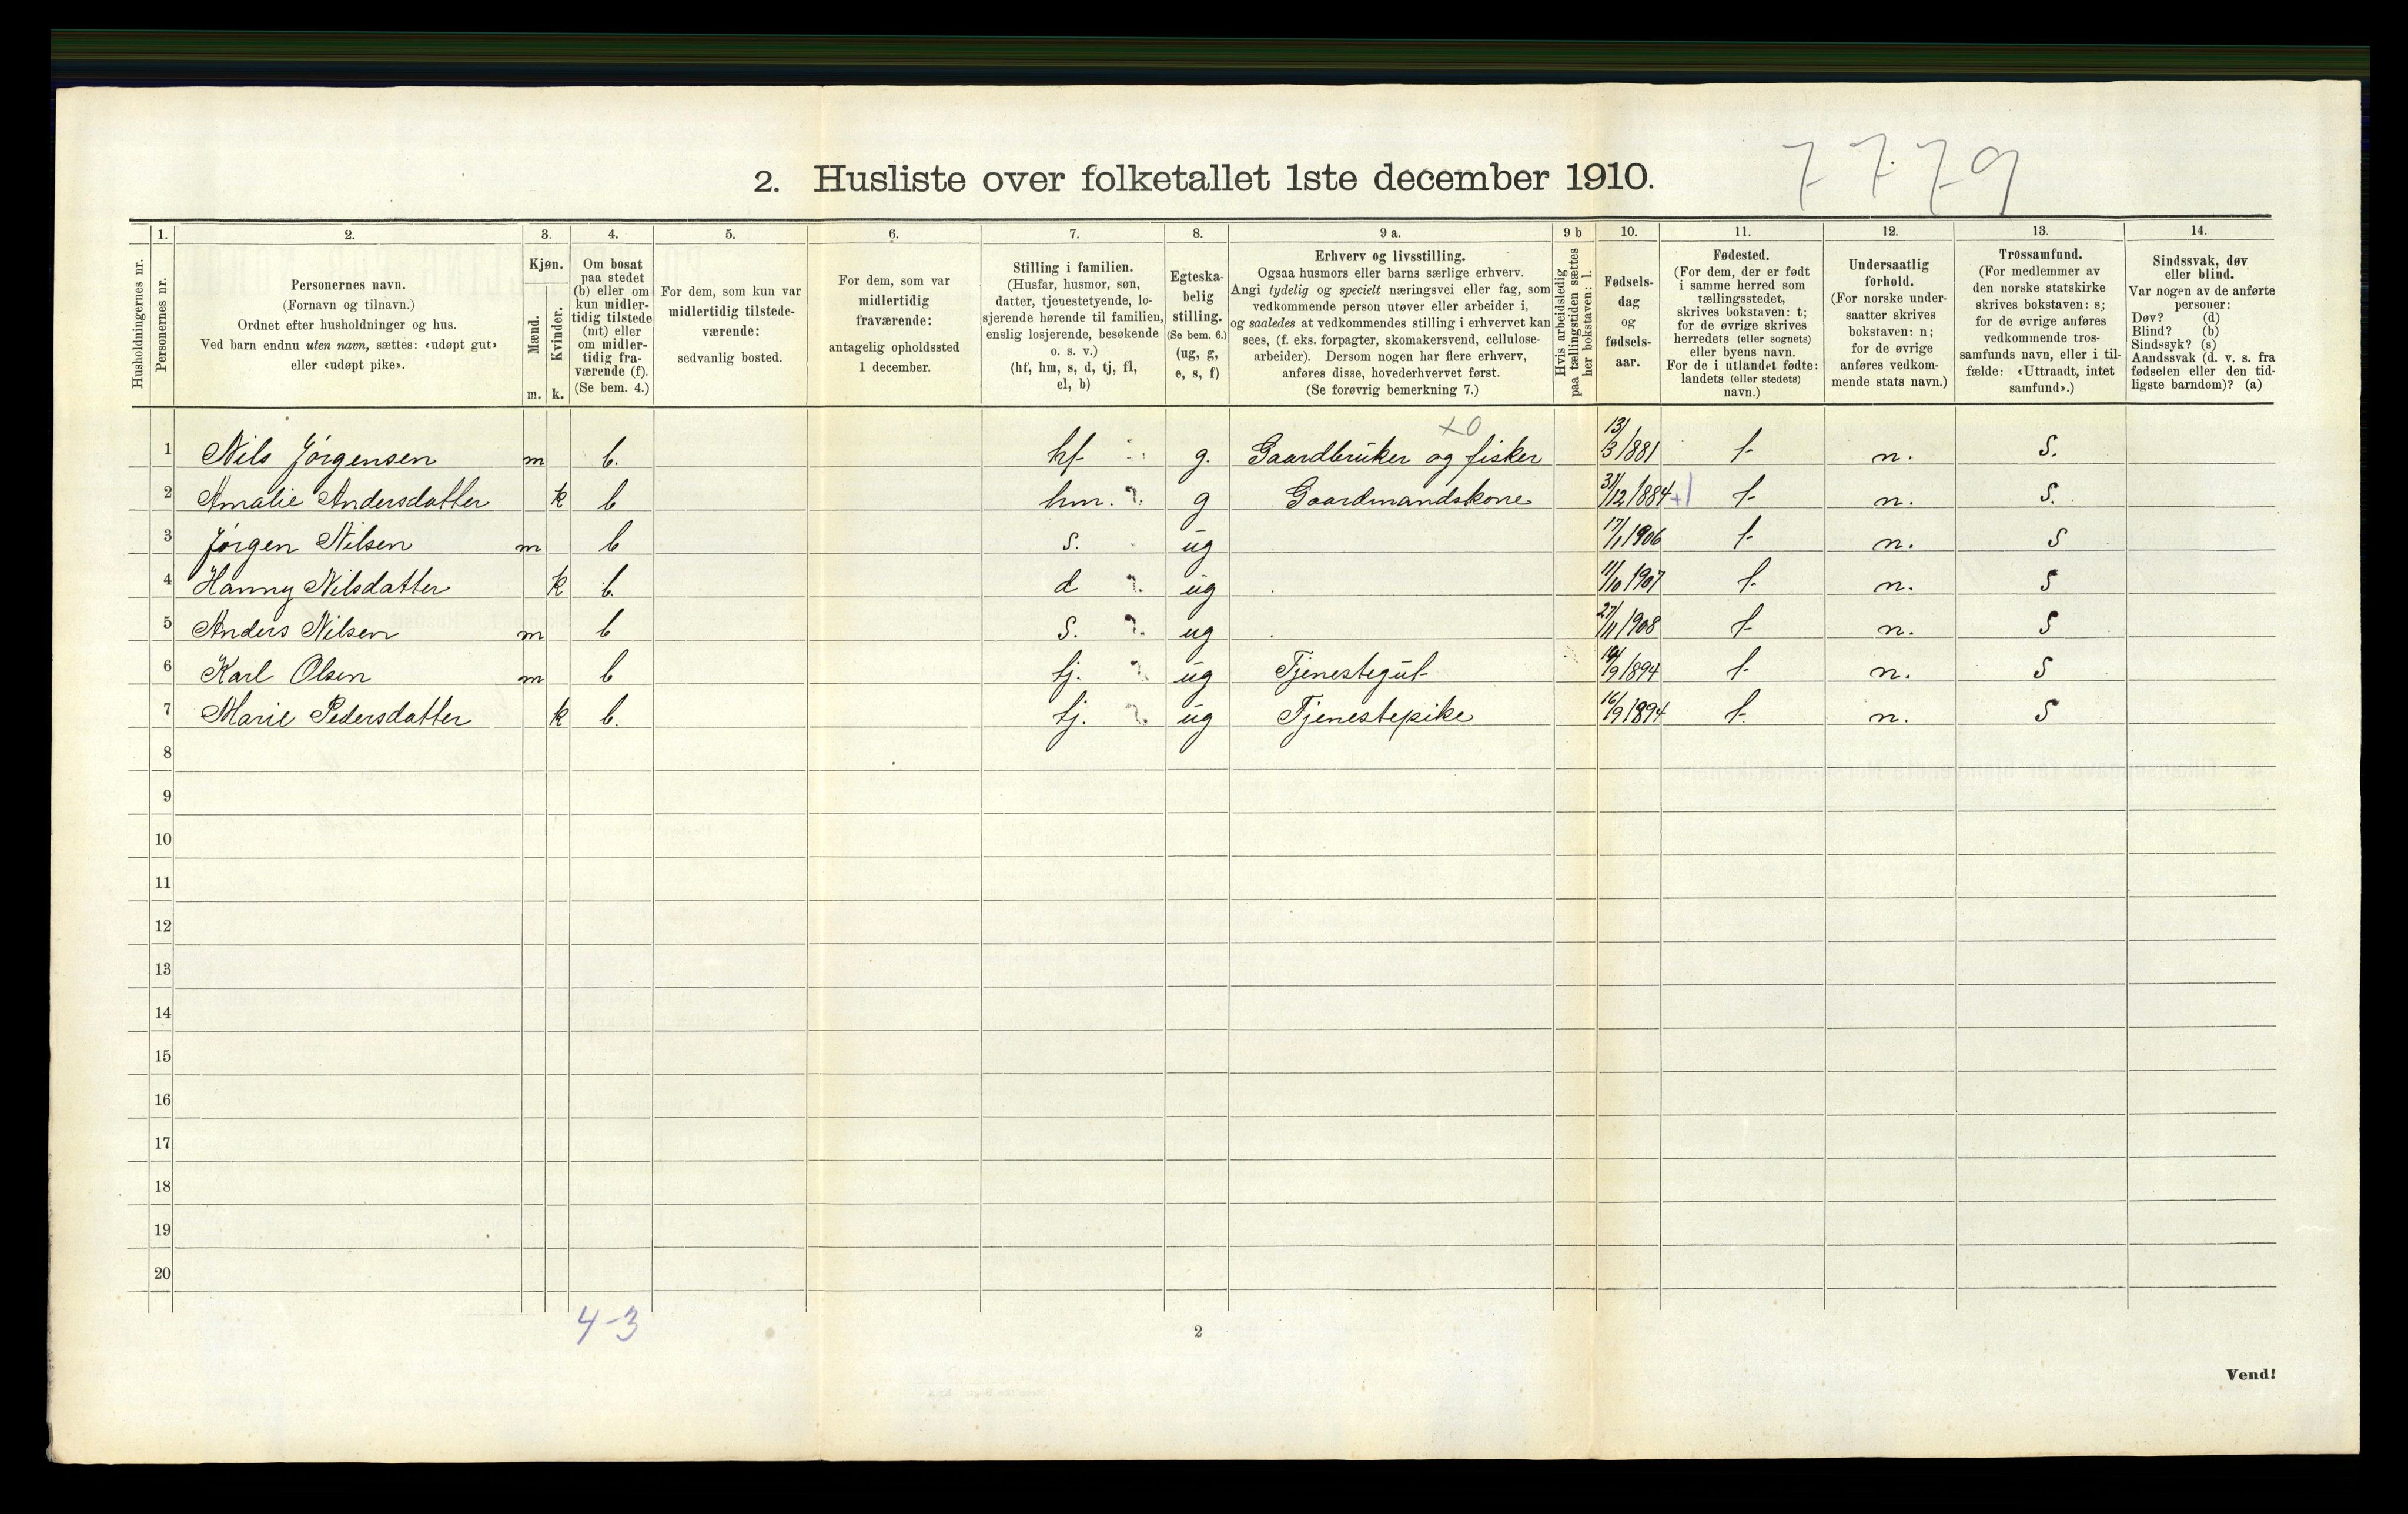 7 7 79
2. Husliste over folketallet 1ste december 1910.
1. 2. 3. 4. 5. 6. 7. 8. 9 a. 9 b 10. 11. 12. 13. 14.
Husholdningernes nr.
Personernes nr.
Personernes navn.
(Fornavn og tilnavn.)
Ordnet efter husholdninger og hus.
Ved barn endnu uten navn, sættes: «udøpt gut»
eller «udøpt pike».
Kjøn.
Mænd.
Kvinder.
m. k.
Om bosat
paa stedet
(b) eller om
kun midler-
tidig tilstede
(mt) eller
om midler-
tidig fra-
værende (f).
(Se bem. 4.)
For dem, som kun var
midlertidig tilstede-
værende:
sedvanlig bosted.
For dem, som var
midlertidig
fraværende:
antagelig opholdssted
1 december.
Stilling i familien.
(Husfar, husmor, søn,
datter, tjenestetyende, lo-
sjerende hørende til familien,
enslig losjerende, besøkende
o. s. v.)
(hf, hm, s, d, tj, fl,
el, b)
Egteska-
belig
stilling.
(Se bem. 6.)
(ug, g,
e, s, f)
Erhverv og livsstilling.
Ogsaa husmors eller barns særlige erhverv.
Angi tydelig og specielt næringsvei eller fag, som
vedkommende person utøver eller arbeider i,
og saaledes at vedkommendes stilling i erhvervet kan
sees, (f. eks. forpagter, skomakersvend, cellulose-
arbeider). Dersom nogen har flere erhverv,
anføres disse, hovederhvervet først.
(Se forøvrig bemerkning 7.)
Hvis arbeidsledig
paa tællingstiden sættes
her bokstaven: l.
Fødsels-
dag
og
fødsels-
aar.
Fødested.
(For dem, der er født
i samme herred som
tællingsstedet,
skrives bokstaven: t;
for de øvrige skrives
herredets (eller sognets)
eller byens navn.
For de i utlandet fødte:
landets (eller stedets)
navn.)
Undersaatlig
forhold.
(For norske under-
saatter skrives
bokstaven: n;
for de øvrige
anføres vedkom-
mende stats navn.)
Trossamfund.
(For medlemmer av
den norske statskirke
skrives bokstaven: s;
for de øvrige anføres
vedkommende tros-
samfunds navn, eller i til-
fælde: «Uttraadt, intet
samfund».)
Sindssvak, døv
eller blind.
Var nogen av de anførte
personer:
Døv? (d)
Blind? (b)
Sindssyk? (s)
Aandssvak (d. v. s. fra
fødselen eller den tid-
ligste barndom)? (a)
x0
1 Nils Jørgensen m b. hf g. Gaardbruker og fisker 13/3 1881 t n. S.
2 Amalie Andersdatter k b hm. g Gaardmandskone 31/12 1884 t n. S.
3 Jørgen Nilsen m b s. ug 17/1 1906 t n. S
4 Hanny Nilsdatter k b. d ug 11/10 1907 t n. S
5 Anders Nilsen m b s. ug 27/11 1908 t n. S
6 Karl Olsen m b tj. ug Tjenestegut 14/9 1894 t n. S
7 Marie Pedersdatter k b. tj. ug Tjenestepike 16/9 1894 t n. S
8
9
10
11
12
13
14
15
16
17
18
19
20
4-3
2
Vend!